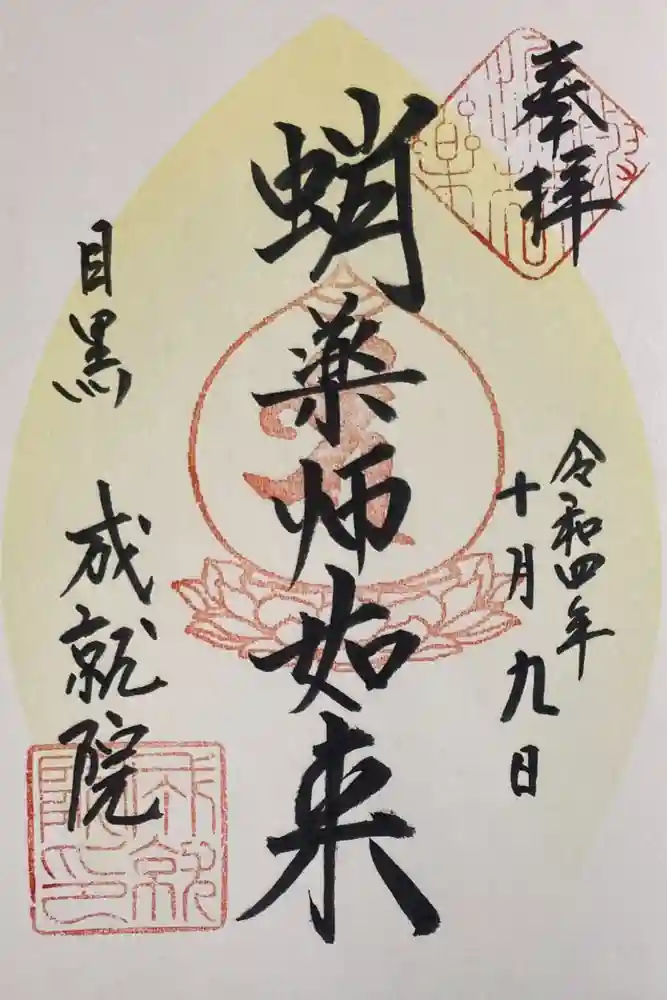 奉拝
令和四年
十月九日
蛸薬师如来
目黒 成就院
成就院印